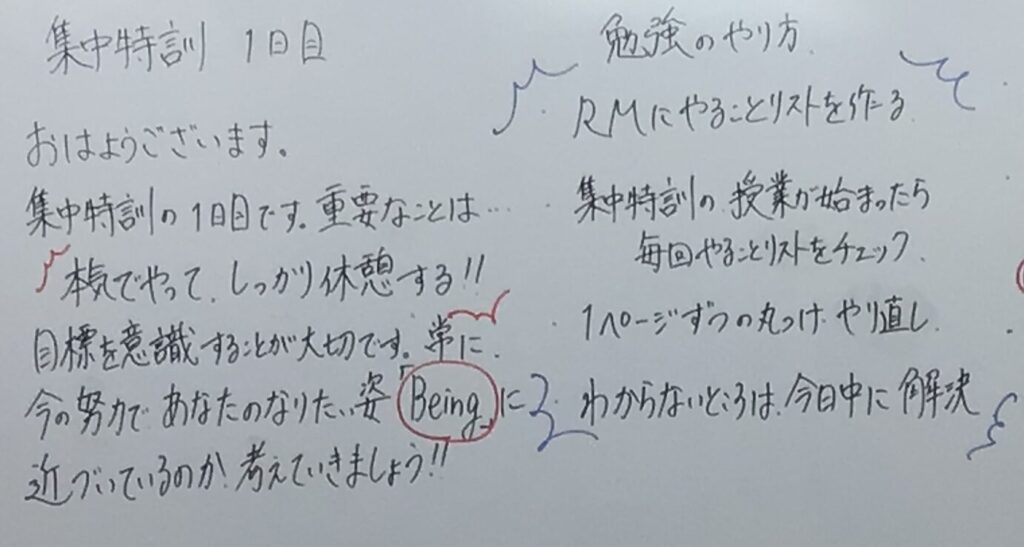 集中特訓 1日目
おはようございます。
集中特訓の1日目です。重要なことは…
本気でやって、しっかり休憩する!!
目標を意識することが大切です。常に、
今の努力であなたのなりたい姿「Being」に
近づいているのか!考えていきましょう!!
勉強のやり方
・RMにやることリストを作る
・集中特訓の授業が始まったら
毎回やることリストをチェック
・1ページずつの丸つけ、やり直し
・わからないところは、今日中に解決